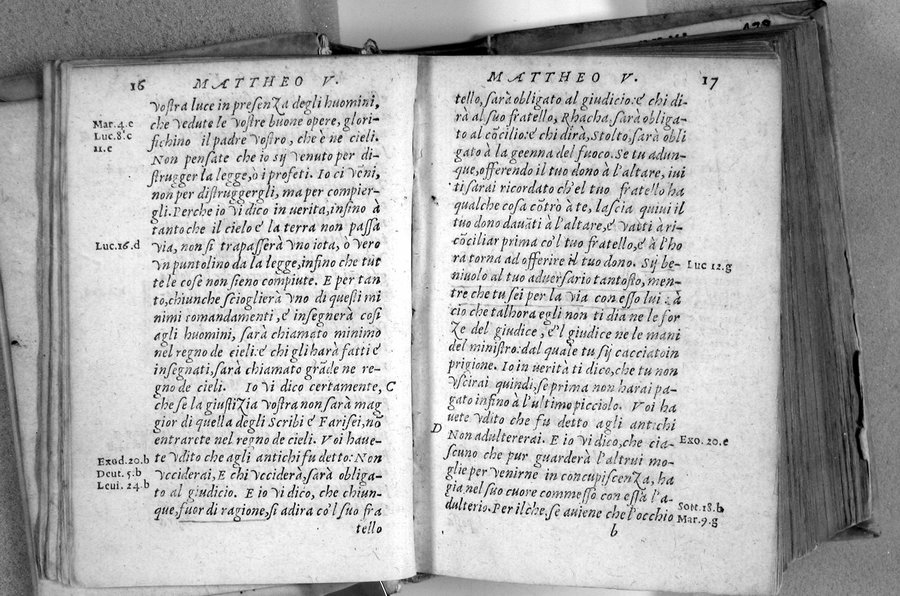 16 MATTHEO V.
vostra luce in presenza degli huomini,
Mar. 4.c che vedute le vostre buone opere, glori-
Luc. 8. c fichino il padre vostro, che è ne cieli.
11.e Non pensate che io sÿ venuto per di-
strugger la legge, o i profeti. Io ci vēni,
non per distruggergli, ma per compier-
gli. Perche io vi dico in verita, infino à
tanto che il cielo e la terra non passa
Luc. 16.d via, non si trapasserà vno iota, ò vero
vn puntolino da la legge, infino che tut
te le cose non sieno compiute. E per tan
to, chiunche scioglierà vno di questi mi
nimi comandamenti, e insegnerà così
agli huomini, sarà chiamato minimo
nel regno de cieli: e chi gli harà fatti e
insegnati, sarà chiamato grāde ne re-
gno de cieli. Io vi dico certamente, C
che se la giustizia vostra non sarà mag
gior di quella degli Scribi e Farisei, nō
entrarete nel regno de cieli. Voi haue-
Exod. 20.b te vdito che agli antichi fu detto: Non
Deut. 5.b vcciderai, E chi vcciderà, sarà obliga-
Leui. 24.b to al giudicio. E io vi dico, che chiun-
que, fuor di ragione, si adira co'l suo fra
tello
MATTHEO V. 17
tello, sarà obligato al giudicio: e chi di-
rà al suo fratello, Rhacha, sarà obliga-
to al cōcilio: e chi dirà, Stolto, sarà obli
gato à la geenna del fuoco. Se tu adun-
que, offerendo il tuo dono à l'altare, iui
ti sarai ricordato ch'el tuo fratello ha
qualche cosa cōtrò à te, lascia quiui il
tuo dono dauāti à l'altare, e vatti à ri-
cōciliar prima co'l tuo fratello, e à l'ho
ra torna ad offerire il tuo dono. Sÿ be- Luc 12.g
niuolo al tuo aduersario tantosto, men-
tre che tu sei per la via con esso lui: à
cio che talhora egli non ti dia ne le for
ze del giudice, e'l giudice ne le mani
del ministro: dal quale tu sÿ cacciato in
prigione. Io in verità ti dico, che tu non
vscirai quindi, se prima non harai pa-
gato infino à l'ultimo picciolo. Voi ha
uete vdito che fu detto agli antichi
D Non adultererai. E io vi dico, che cia- Exo. 20.e
scuno che pur guarderà l'altrui mo-
glie per venirne in concupiscenza, ha
gia nel suo cuore commesso con essa l'a-
dulterio. Per il che, se auiene che l'occhio Sott. 18.b
b Mar. 9.g